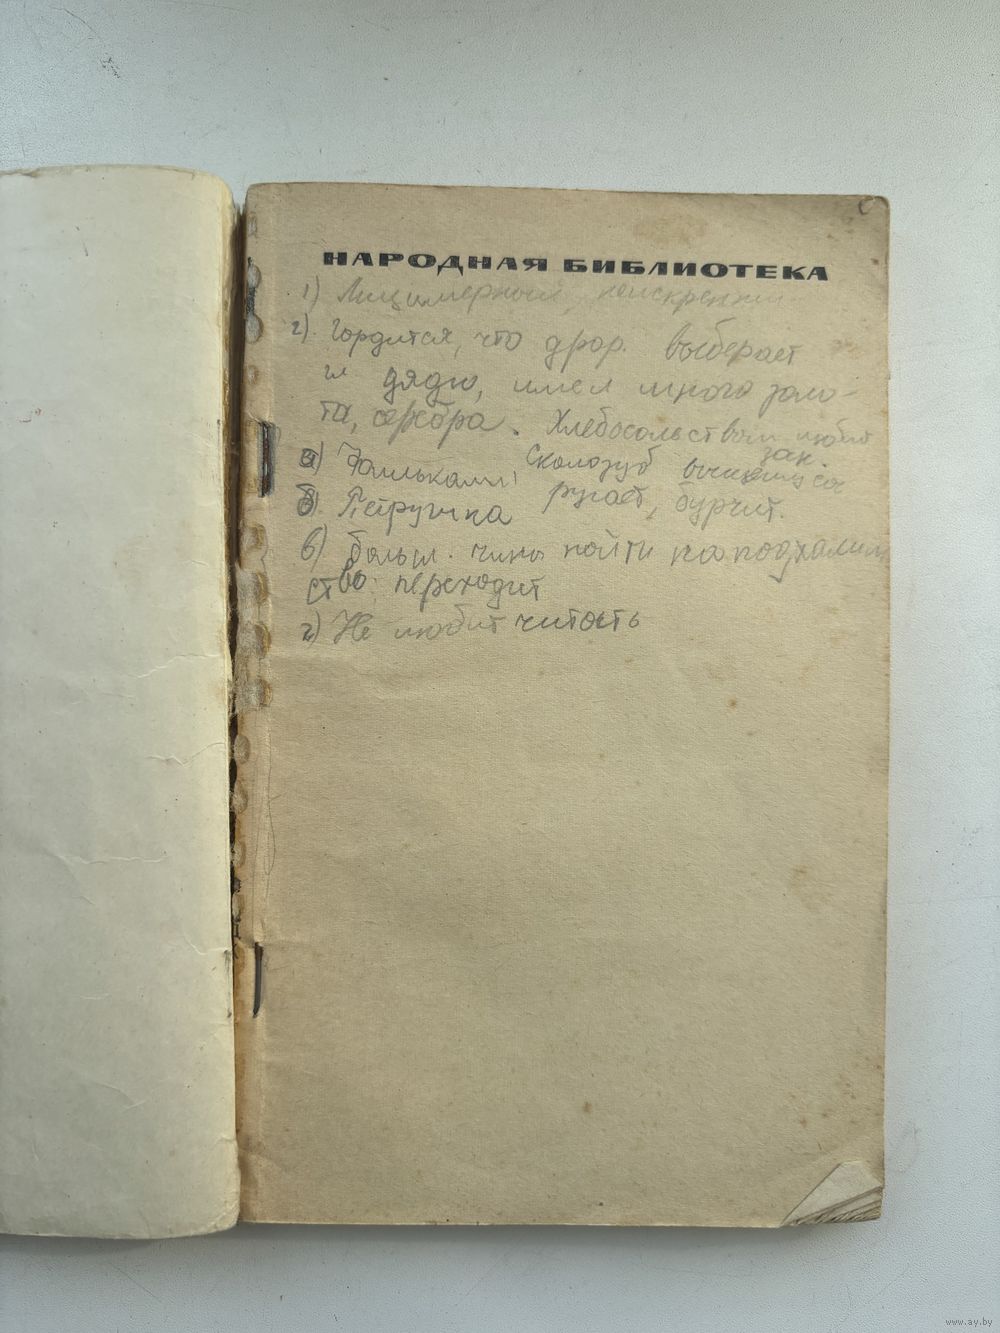 НАРОДНАЯ БИБЛИОТЕКА
1) Лицимерный, неискренний
2). Гордится, что двор. выберает
дядю, имел много золо-
та, серебра. Хлебосольством любит
зак.
а) Фамльками, Сколозуб
б) Петрушка ругает, бурчит.
в) больш. чины пойти на подхалим
ство переходит
г) Не любит читать
www.ay.by